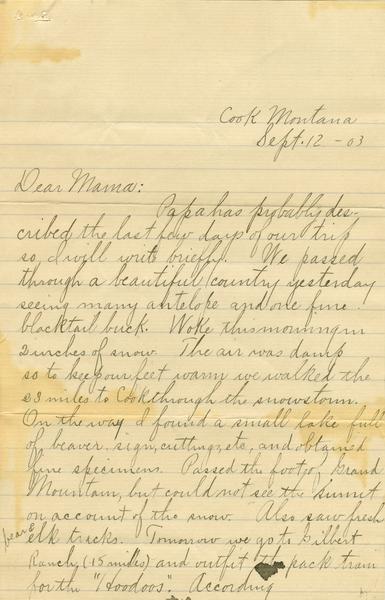 Cook Montana
Sept. 12 - 03
Dear Mama:
Papa has probably des-
cribed the last few days of our trip
so, I will write briefly. We passed
through a beautiful country yesterday
seeing many antelope and one fine
blacktail buck. Woke this morning in
2 inches of snow. The air was damp
so to keep our feet warm we walked the
23 miles to Cook through the snowstorm.
On the way I found a small lake full
of beaver sign, cuttings, etc, and obtained
fine specimens. Passed the foot of Grand
Mountain, but could not see the sumit
on account of the snow. Also saw fresh
bear &
elk tracks. Tomorrow we go to Gilbert
Ranch, (15 miles) and outfit pack train
for the "Hoodoos". According